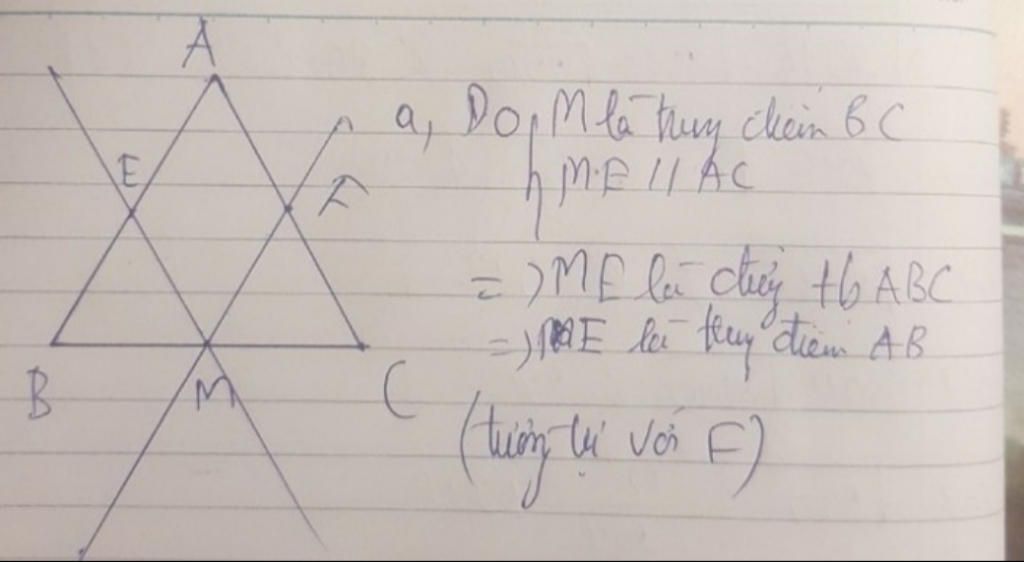 A
E
F
B
M
C
a, Do { M là trung điểm BC
ME // AC
=> ME là đường tb ABC
=> E là trung điểm AB
(tương tự với F)